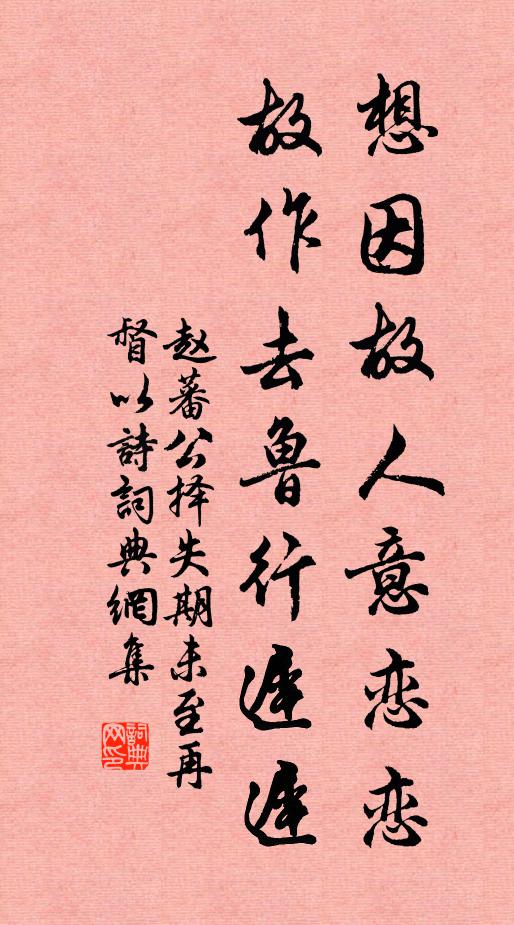 想因故人意恋恋
故作去魯行遲遲
赵蕃公择失期未至再
督以詩詞典網集
詞典
网印